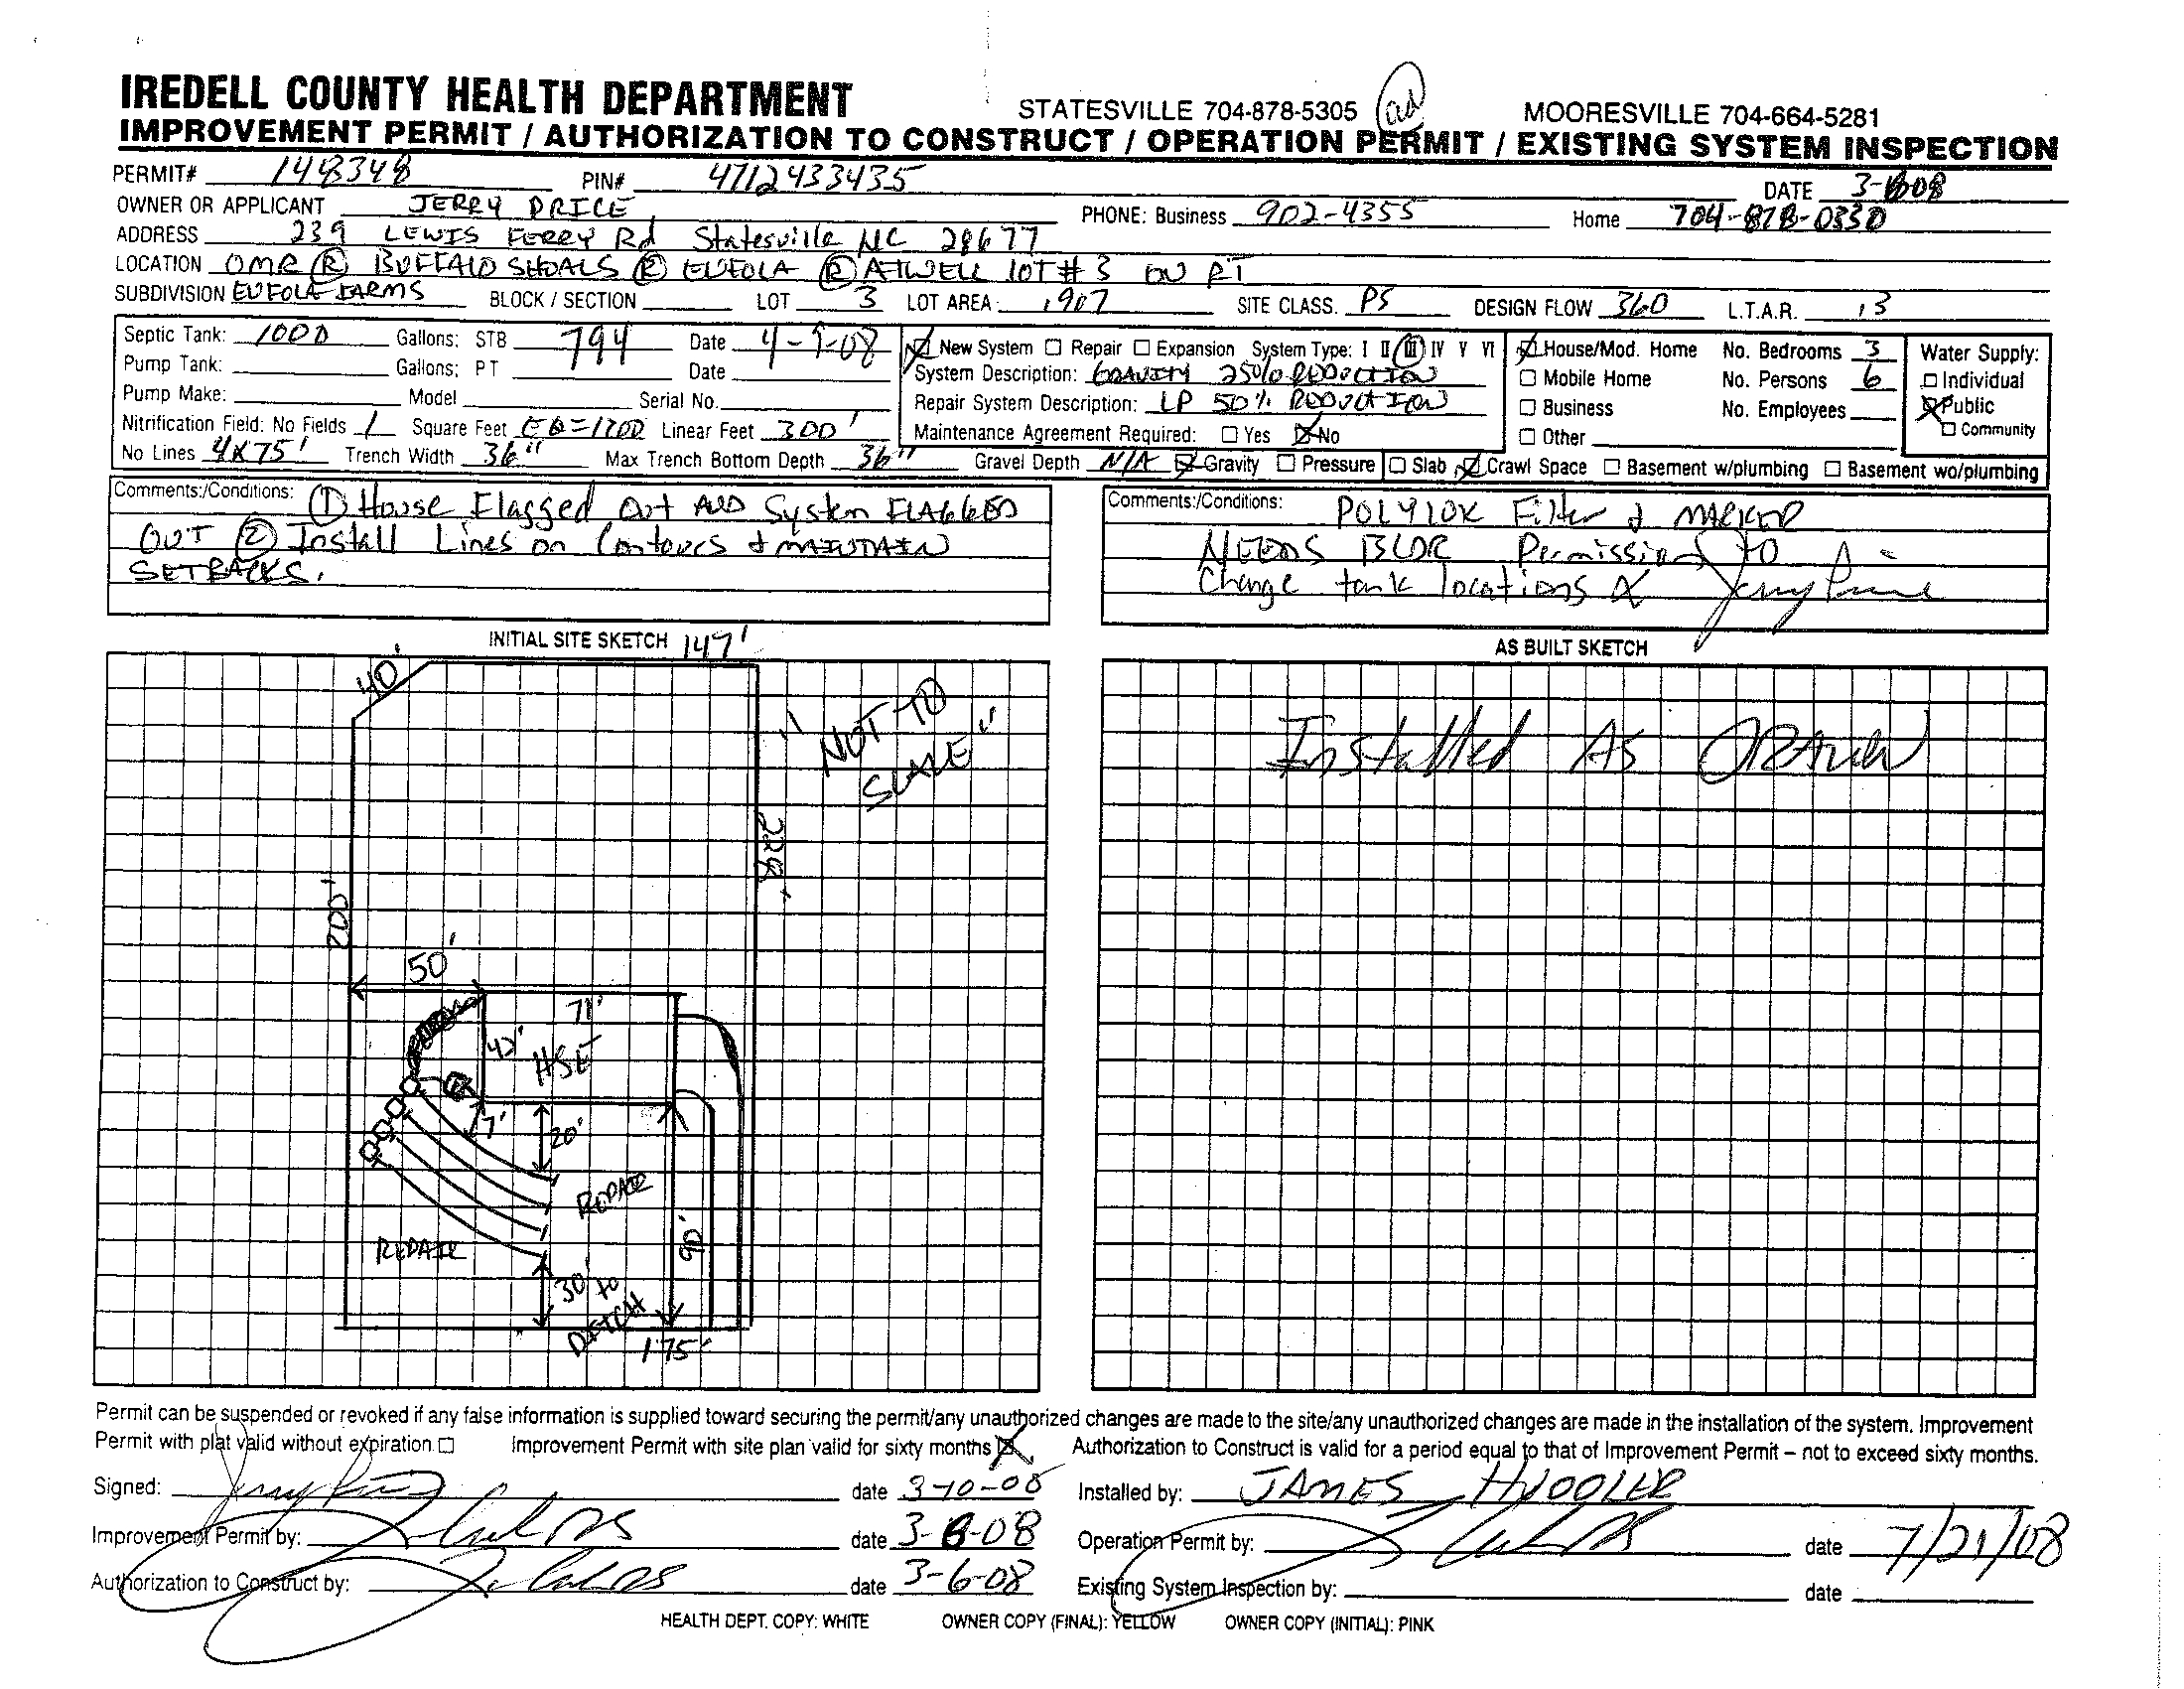 IREDELL COUNTY HEALTH DEPARTMENT STATESVILLE 704-878-5305 ad MOORESVILLE 704-664-5281
IMPROVEMENT PERMIT / AUTHORIZATION TO CONSTRUCT / OPERATION PERMIT / EXISTING SYSTEM INSPECTION
PERMIT# 148348 PIN# 4712433435 DATE
OWNER OR APPLICANT JERRY PRICE PHONE: Business 902-4355 Home 704-878-0330
ADDRESS 239 LEWIS FERRY Rd Statesville NC 28677
LOCATION OMR R BUFFALO SHOALS R EUFOLA R ATWELL LOT # 3 ON RT
SUBDIVISION EUFOLA FARMS BLOCK / SECTION LOT 3 LOT AREA .907 SITE CLASS. PS DESIGN FLOW 360 L.T.A.R. .3
Septic Tank: 1000 Gallons: STB 794 Date 4-9-08 New System Repair Expansion System Type: I II III IV V VI House/Mod. Home No. Bedrooms 3 Water Supply:
Pump Tank: Gallons: PT Date System Description: GRAVITY 25% REDUCTION Mobile Home No. Persons 6 Individual
Pump Make: Model Serial No. Repair System Description: LP 50% REDUCTION Business No. Employees Public
Nitrification Field: No Fields 1 Square Feet EQ=1200 Linear Feet 300' Maintenance Agreement Required: Yes No Other Community
No Lines 4x75' Trench Width 36" Max Trench Bottom Depth 36" Gravel Depth N/A Gravity Pressure Slab Crawl Space Basement w/plumbing Basement wo/plumbing
Comments:/Conditions: ① House Flagged Out AND System FLAGGED
OUT ② Install Lines on Contours & MAINTAIN
SETBACKS.
Comments:/Conditions: POLYLOK Filter & MARKER
NEEDS BLDR Permission to
Change tank locations X Jerry Price
INITIAL SITE SKETCH 147'
40'
"NOT TO
SCALE"
228'
200'
50'
71'
42'
HSE
7'
20'
REPAIR
90'
REPAIR
30' to
DITCH
175'
AS BUILT SKETCH
Installed As DRAWN
Permit can be suspended or revoked if any false information is supplied toward securing the permit/any unauthorized changes are made to the site/any unauthorized changes are made in the installation of the system. Improvement
Permit with plat valid without expiration Improvement Permit with site plan valid for sixty months Authorization to Construct is valid for a period equal to that of Improvement Permit – not to exceed sixty months.
Signed: Jerry Price date 3-10-08 Installed by: JAMES
Improvement Permit by: date 3-6-08 Operation Permit by: date 7/21/08
Authorization to Construct by: date 3-6-08 Existing System Inspection by: date
HEALTH DEPT. COPY: WHITE OWNER COPY (FINAL): YELLOW OWNER COPY (INITIAL): PINK